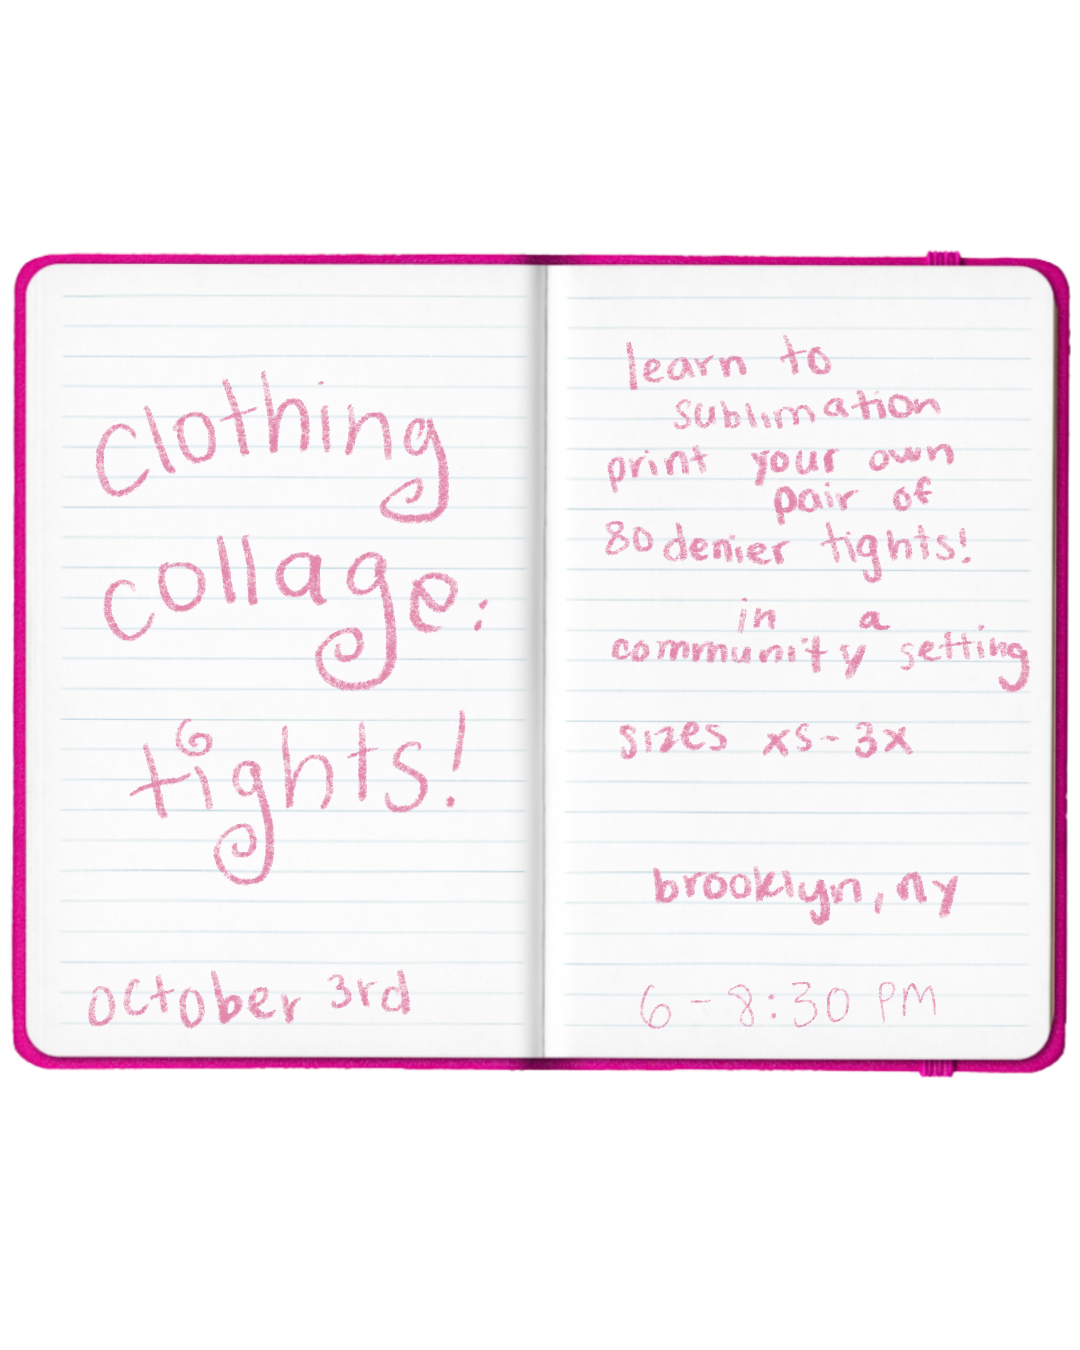 clothing
collage:
tights!
october 3rd
learn to
sublimation
print your own
pair of
80 denier tights!
in a
community setting
sizes xs-3x
brooklyn, ny
6-8:30 PM